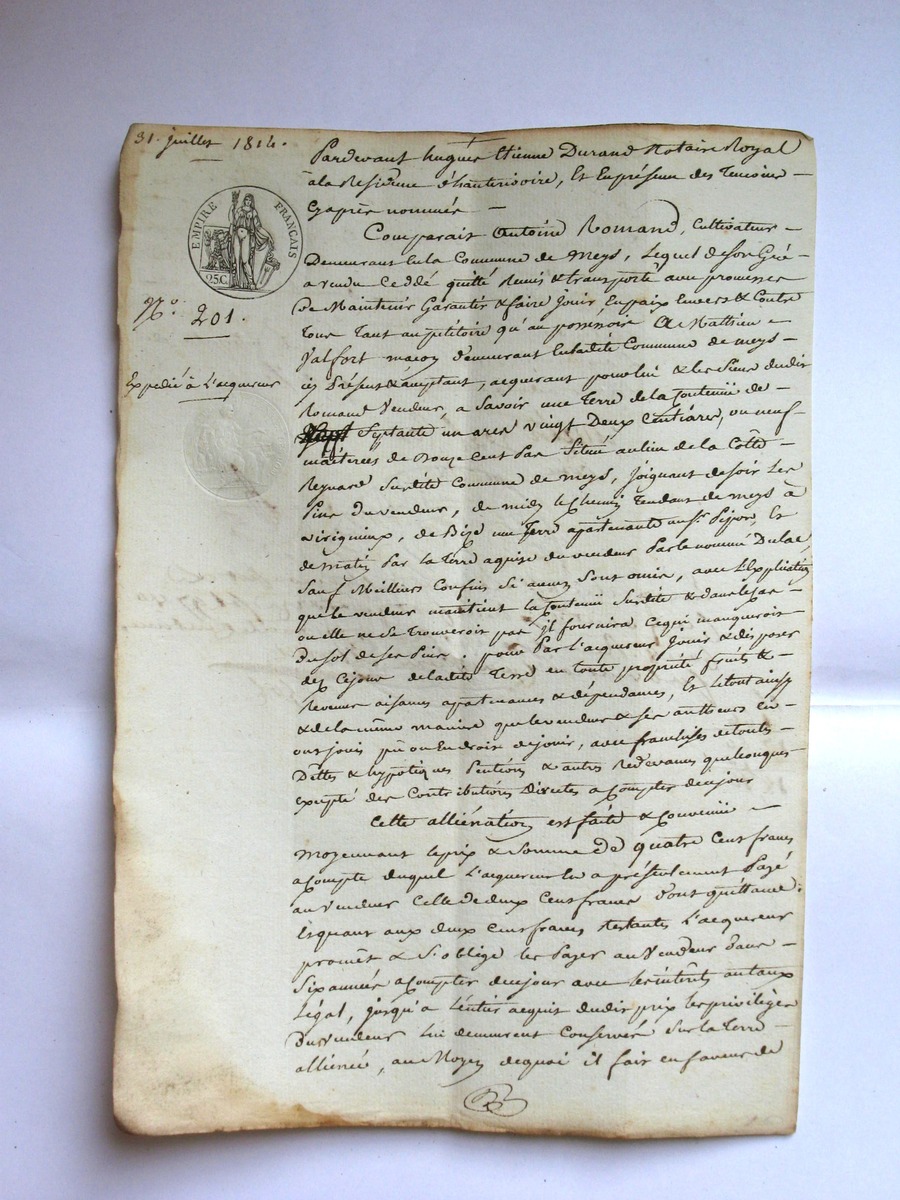 31. juillet 1814.
EMPIRE FRANÇAIS
25C.
N.o
201.
Expedié à L'acquereur
Pardevant hugues Etienne Durand Notaire Royal
à la Residence d'hauterivoire, Et Enpresence des Temoins
Cy après nommés
Comparait Antoine Romand, Cultivateur
Demeurant En la Commune de Meys, Lequel de Son Gré
a vendu Ceddé quitté Remis & transporté avec promesses
De Maintenir Garantir & faire Jouir Enpaix Envers & Contre
Tous Tant au petitoire qu'au possessoire A Mathieu
Jalfort maçon demeurant En ladite Commune de meys
icy Présent & acceptant, acquerant pour lui & les Siens dudit
Romand Vendeur, a Savoir une Terre de la Contenüe de
Septante un ares vingt Deux Centiares, ou neuf
maiterées de Onze Cent Pas Situé aulieu de la Côte
Reynard Surdite Commune de meys, Joignant de Soir Les
Pins du vendeur, de midy le Chemin Tendant de meys à
virignieux, de Bize une Terre apartenante au Sr. Pijon, Et
de matin Par la Terre aquise du vendeur Par le nommé Dulac,
Sauf Meilliers Confins Si aucuns Sont omis, avec L'Explication
que le vendeur maintient la Contenüe Surdite & dans le Cas
ou elle ne Se Trouveroit pas il fournira Ce qui manqueroit
Du Sol de Ses Pins. pour Par L'acquereur Jouir & disposer
dez Cejour deladite Terre en toute propriété fruits &
Revenus aisances apartenances & dépendances, Et Letout ainsy
& de la même maniere que le vendeur & Ses autheurs En
ont jouis pû ou En droit dejouir, avec franchises de toutes
Dettes & hypotiques Pentions & autres Redevances quelconques
excepté des Contributions Directes a Compter de cejour
Cette alliénation est faite & Convenüe
moyennant le prix & Somme de quatre Cent francs
a Compte duquel L'acquereur En a présentement Payé
au Vendeur Celle de deux Cent francs dont quittance.
Et quant aux deux Cent francs restants L'acquereur
promet & S'oblige les Payer au Vendeur dans
Six années a Compter de cejour avec les intérêts au taux
Légal, jusqu'a L'entier acquit dudit prix les priviléges
Du vendeur Lui demeurent Conservés Sur la Terre
alliénée, au Moyen de quoi il fait en faveur de